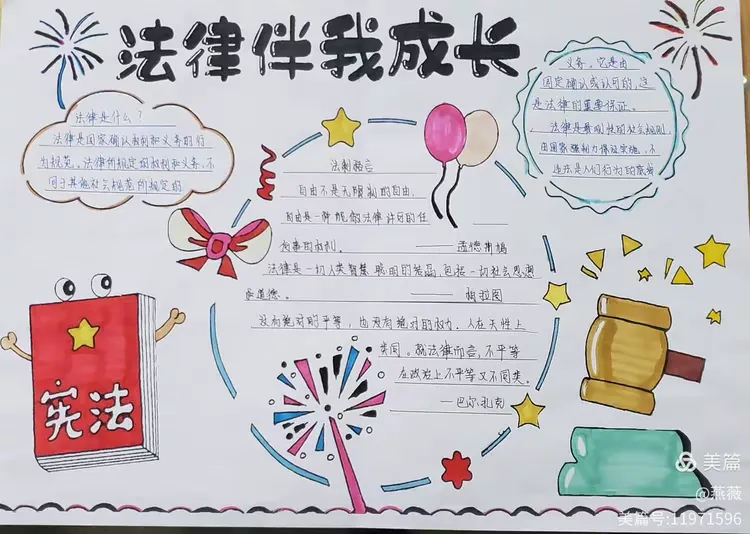 法律伴我成长
法律是什么？
法律是国家确认权利和义务的行
为规范。法律所规定的权利和义务，不
同于其他社会规范所规定的
义务，它是由
国定确认或认可的，这
是法律的重要保证。
法律是最刚性的社会规则，
由国家强制力保证实施，不
违法是人们行为的底线
法制格言
自由不是无限制的自由，
自由是一种能做法律许可的任
何事的权利。
——孟德斯鸠
法律是一切人类智慧聪明的结晶，包括一切社会思想
和道德。
——柏拉图
没有绝对的平等，也没有绝对的权力。人在天性上
类同。就法律而言，不平等
在政治上不平等又不同类。
——巴尔扎克
宪法
美篇
@燕薇
美篇号:11971596